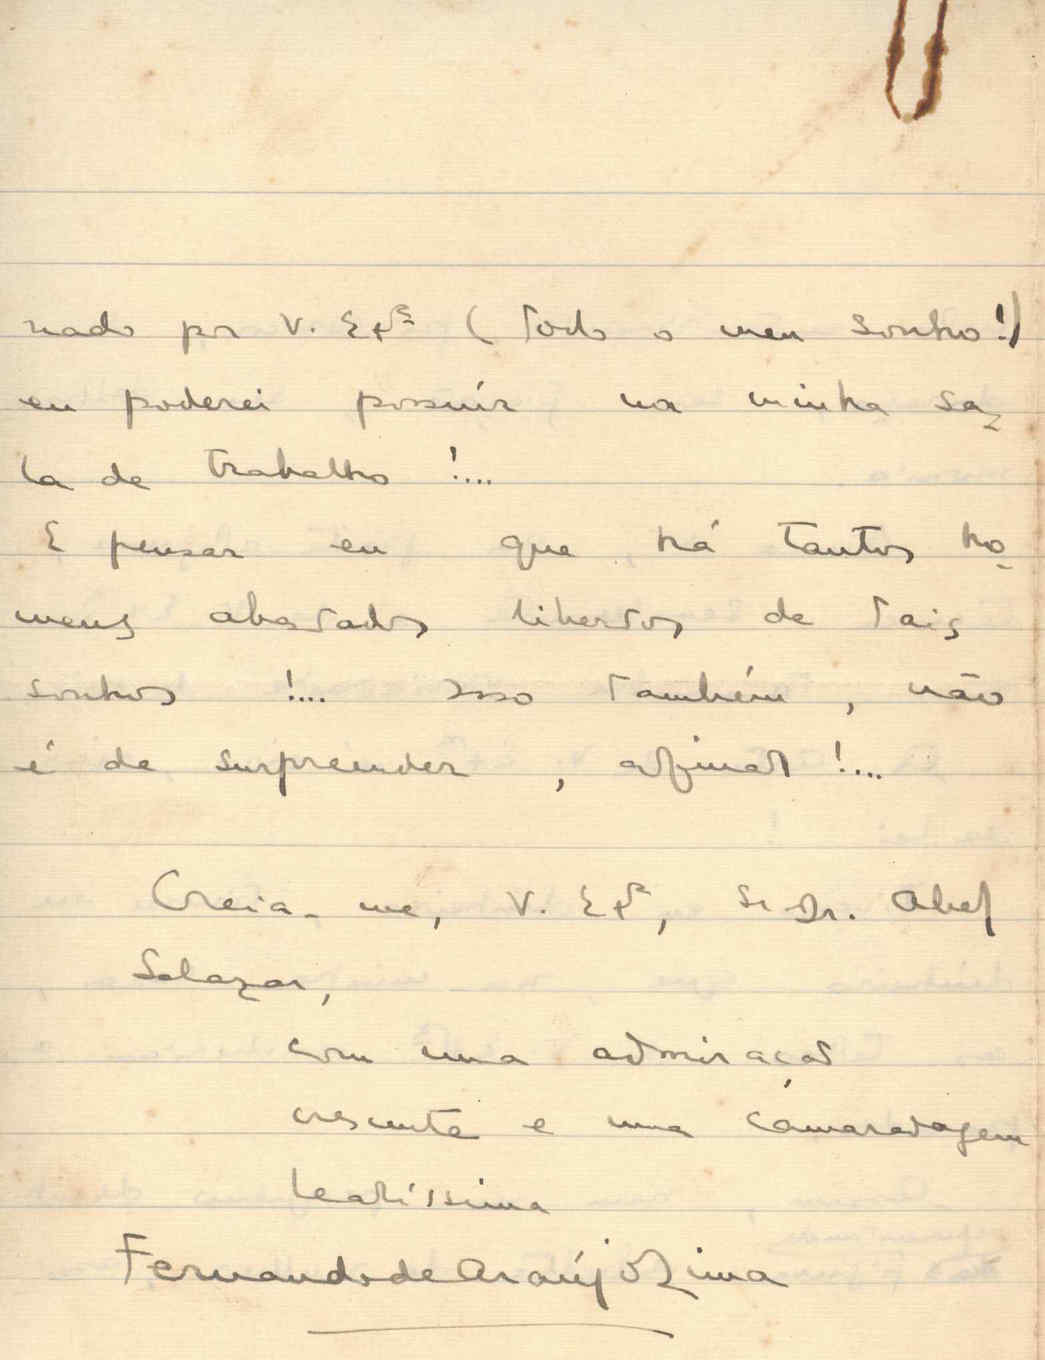 nado por V. Exª (todo o meu sonho!)
eu poderei possuír na minha sa-
la de trabalho !....
E pensar eu que há tantos ho-
mens abastados libertos de tais
sonhos !.... Isso também, não
é de surpreender, afinal !....
Creia-me, V. Exª, Sr Dr. Abel
Salazar,
com uma admiraçaõ
crescente e uma camaradagem
lealíssima
Fernando de Araújo Lima